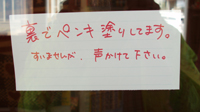 裏でペンキ塗りしてます。
すいませんが、声かけて下さい。